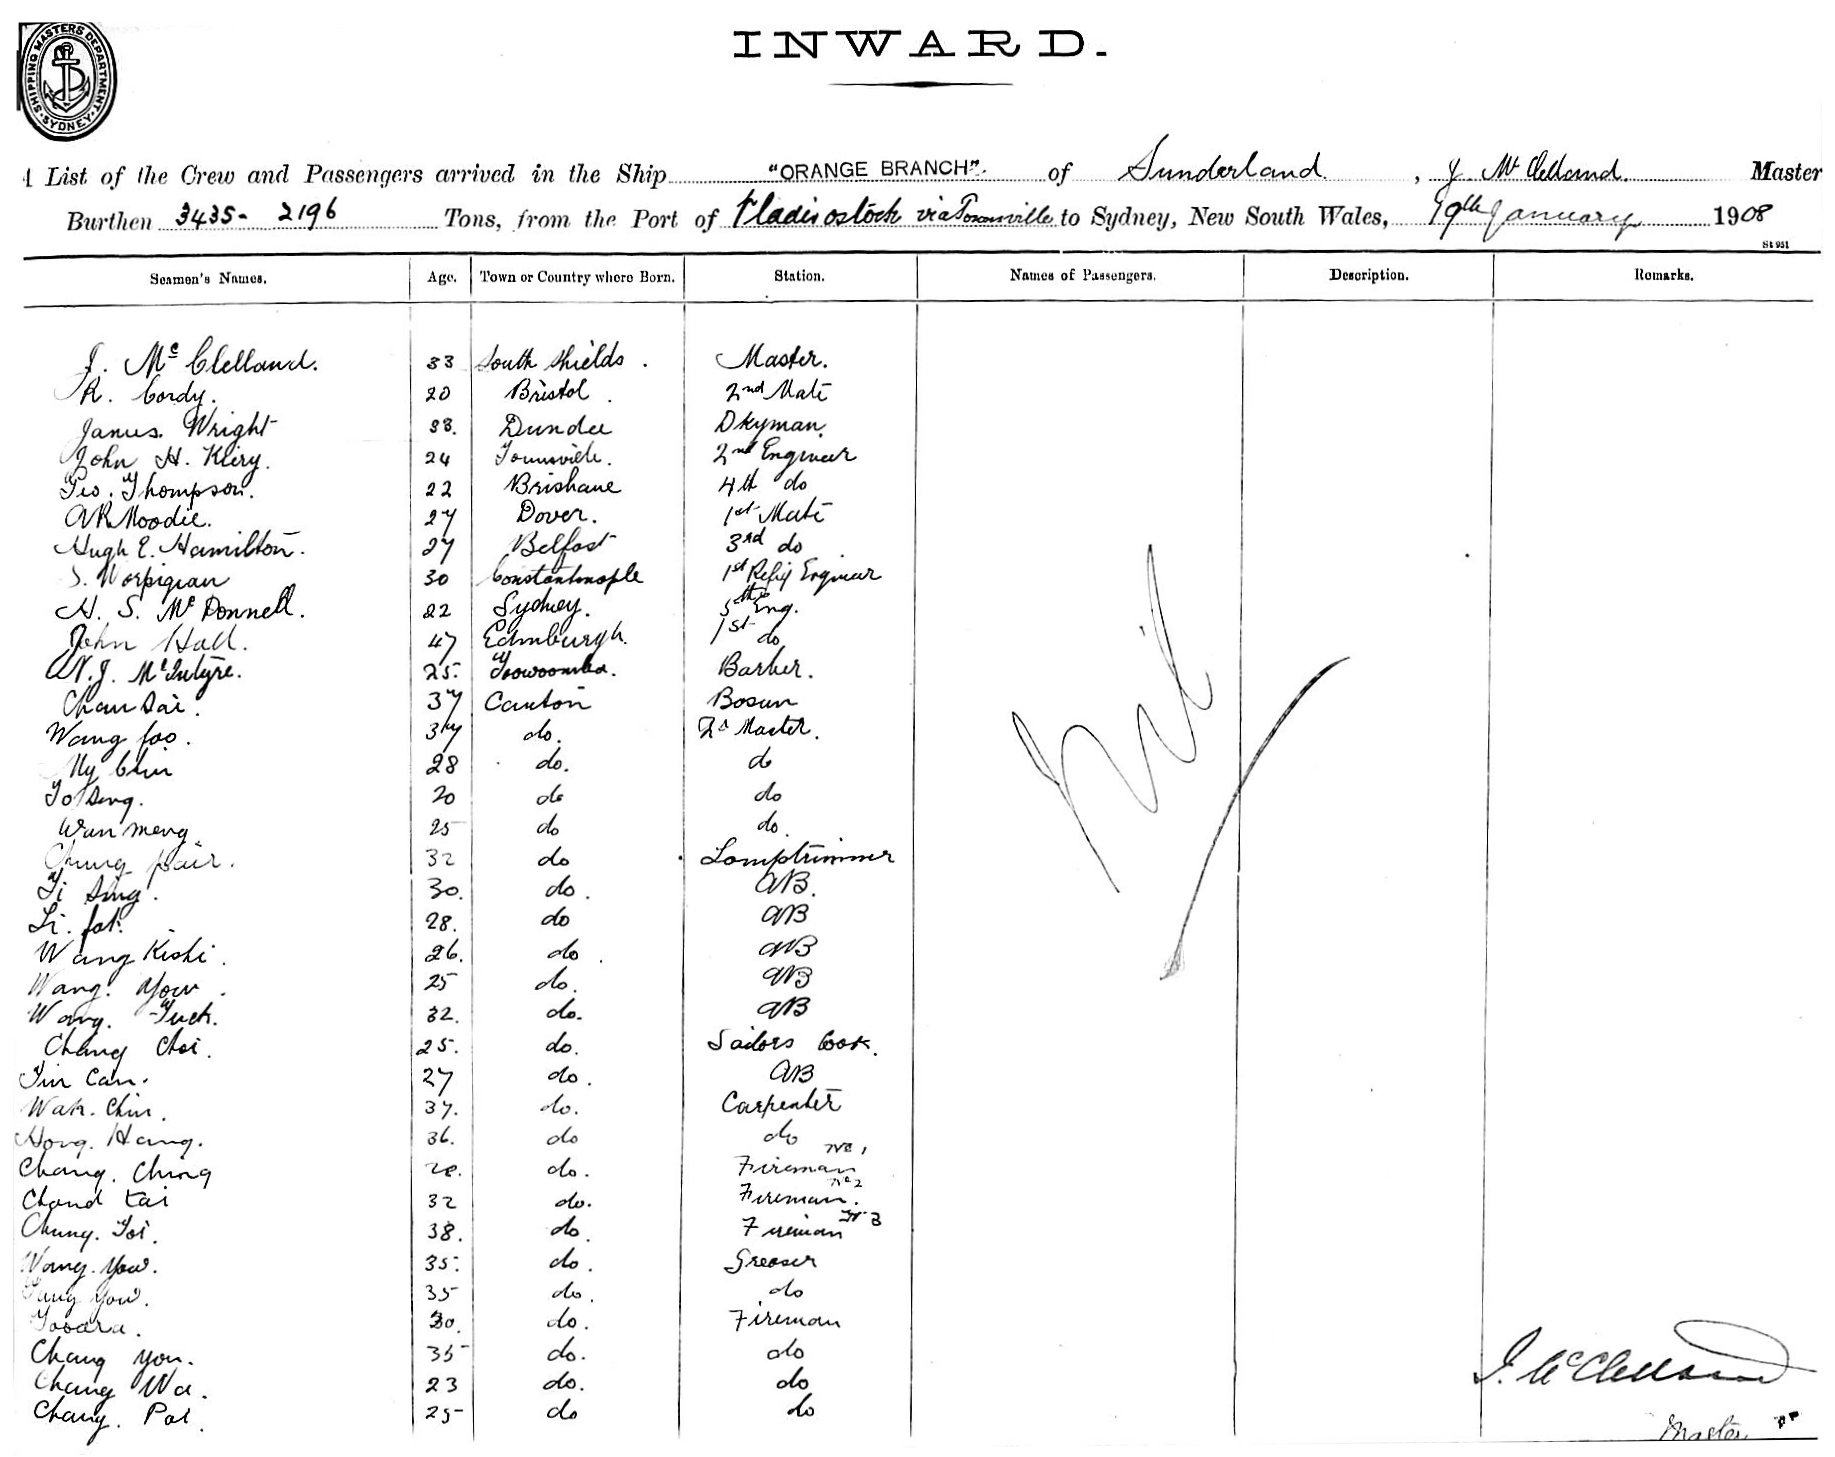 SHIPPING MASTERS DEPARTMENT. SYDNEY.
INWARD.
List of the Crew and Passengers arrived in the Ship "ORANGE BRANCH". of Sunderland, J McClelland. Master
Burthen 3435 - 2196 Tons, from the Port of Vladivostock via Townsville to Sydney, New South Wales, 19th January 1908
St 951
Seamen's Names. Age. Town or Country where Born. Station. Names of Passengers. Description. Remarks.
J. McClelland. 33 South Shields. Master.
R. Cordy. 20 Bristol. 2nd Mate
James Wright 38. Dundee
John H. Kiery. 24 Townsville. 2nd Engineer
Geo. Thompson. 22 Brisbane 4th do
A R Moodie. 27 Dover. 1st Mate
Hugh E. Hamilton. 27 Belfast 3rd do
S. 30 Constantinople 1st Refig Engineer
H. S. McDonnell. 22 Sydney. 5th Eng.
John Hall. 47 Edinburgh. 1st do
N. J. McIntyre. 25. Toowoomba. Barber.
Chan Sai. 37 Canton Bosun
Wang foo. 37 do. Master.
Ny Chin 28 do. do
20 do do
Wan meng 25 do do.
Chung pair. 32 do Lamptrimmer
Ti Sing. 30. do. AB.
Li. fok. 28. do AB
Wang Kishi. 26. do. AB
Wang. Yow. 25 do. AB
Wong. Tuck. 32. do. AB
Chang Choi. 25. do. Sailors Cook.
Tin Can. 27 do. AB
Wah. Chin. 37. do. Carpenter
Hong. Hang. 36. do do
Chang. Ching do. Fireman No 1
Chand tai 32 do. Fireman. No 2
Chung. Toi. 38. do. Fireman No 3
Wang. You. 35. do. Greaser
You. 35 do. do
30. do. Fireman
Chang you. 35 do. do
Chang Wa. 23 do. do
Chang. Pat. 25 do do
Nil
J. McClelland
Master